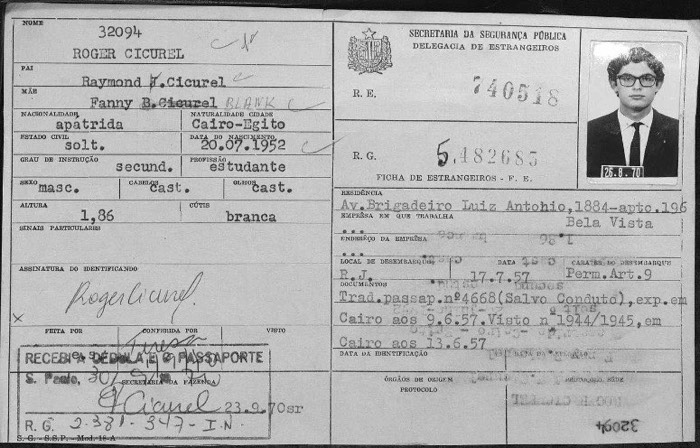 NOME
32094
ROGER CICUREL
PAI
Raymond J.Cicurel
MÃE
Fanny B.Cicurel BLANK
NACIONALIDADE NATURALIDADE CIDADE
apatrida Cairo-Egito
ESTADO CIVIL DATA DO NASCIMENTO
solt. 20.07.1952
GRAU DE INSTRUÇÃO PROFISSÃO
secund. estudante
SEXO CABELOS OLHOS
masc. cast. cast.
ALTURA CÚTIS
1,86 branca
SINAIS PARTICULARES
ASSINATURA DO IDENTIFICANDO
Roger Cicurel
x
FEITA POR CONFERIDA POR VISTO
RECEBI A CÉDULA E O PASSAPORTE
S. Paulo, 30/
SECRETARIA DA FAZENDA
Cicurel 23.9.70sr
R. G. 2.381-347-I.N.
S. G. - S.S.P. - Mod. 18-A
SECRETARIA DA SEGURANÇA PÚBLICA
DELEGACIA DE ESTRANGEIROS
R. E. 740518
R. G. 5.482685
FICHA DE ESTRANGEIROS - F. E.
26. 8. 70
RESIDÊNCIA
Av.Brigadeiro Luiz Antonio,1884-apto.196
EMPRÊSA EM QUE TRABALHA Bela Vista
...
ENDERÊÇO DA EMPRÊSA
...
LOCAL DE DESEMBARQUE DATA CARATER DO DESEMBARQUE
R.J. 17.7.57 Perm.Art.9
DOCUMENTOS
Trad.passap.nº4668(Salvo Conduto),exp.em
Cairo aos 9.6.57.Visto nº1944/1945,em
Cairo aos 13.6.57
DATA DA IDENTIFICAÇÃO
ÓRGÃOS DE ORIGEM
PROTOCOLO
32094